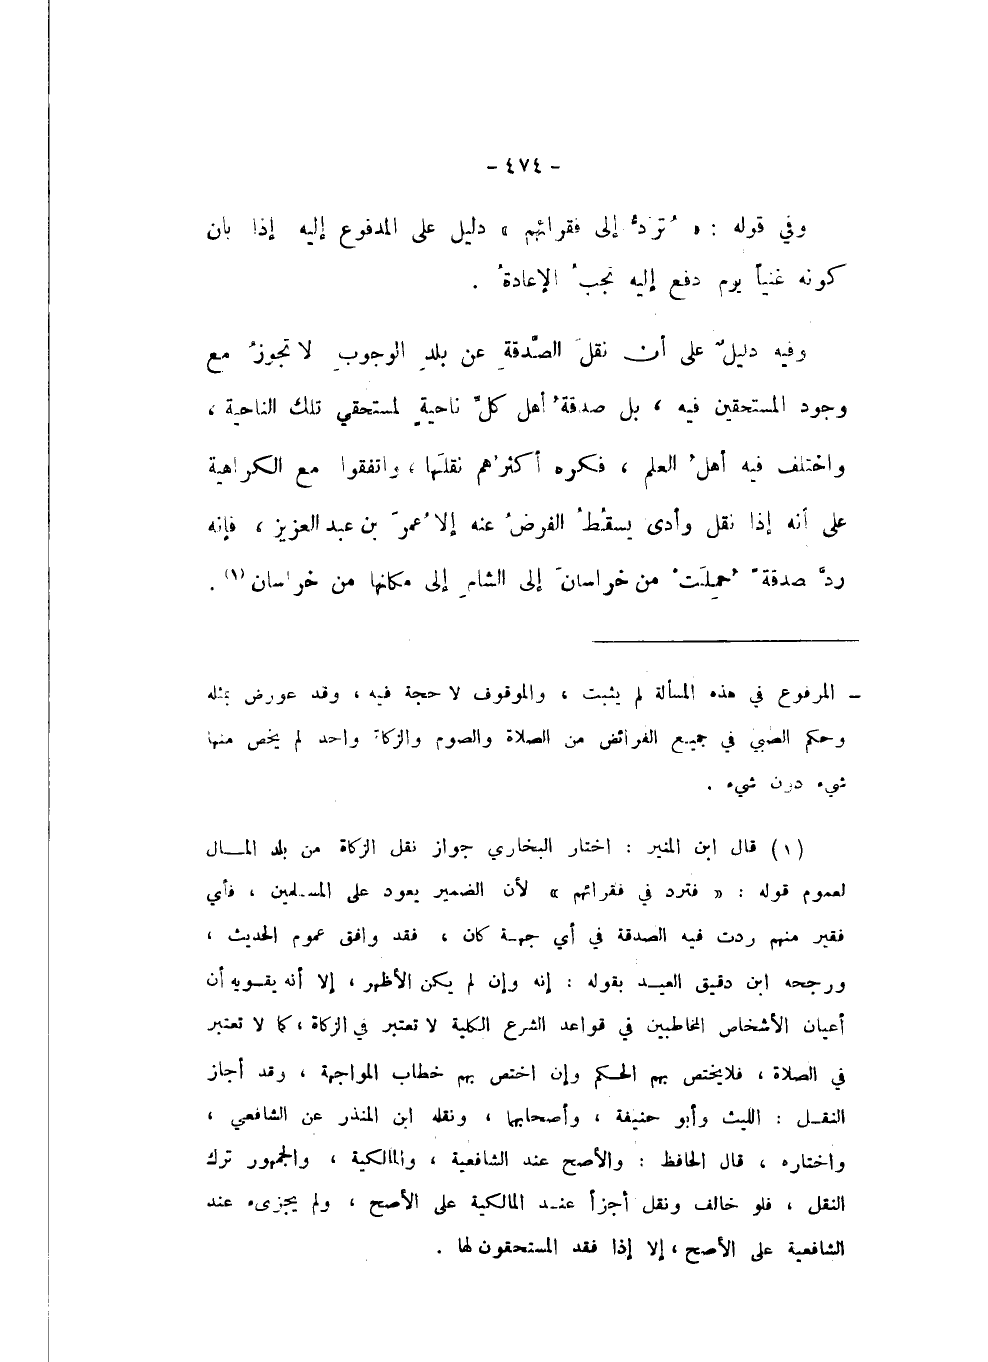 - ٤٧٤ -
وفي قوله : « تُرَدُّ إلى فقرائهم » دليل على المدفوع إليه إذا بان
كونه غنياً يوم دفع إليه تجبُ الإعادةُ .
وفيه دليلٌ على أن نقلَ الصَّدقةِ عن بلدِ الوجوبِ لا تجوزُ مع
وجود المستحقين فيه ، بل صدقةُ أهل كلِّ ناحيةٍ لمستحقي تلك الناحية ،
واختلف فيه أهلُ العلم ، فكره أكثرُهم نقلَها ، واتفقوا مع الكراهية
على أنه إذا نقل وأدى يسقُطُ الفرضُ عنه إلا عُمرَ بن عبد العزيز ، فإنه
ردَّ صدقةً حُمِلَتْ من خراسانَ إلى الشامِ إلى مكانها من خراسان (١) .
ـ المرفوع في هذه المسألة لم يثبت ، والموقوف لا حجة فيه ، وقد عورض بمثله
وحكم الصبي في جميع الفرائض من الصلاة والصوم والزكاة واحد لم يخص منها
شيء دون شيء .
(١) قال ابن المنير : اختار البخاري جواز نقل الزكاة من بلد المـال
لعموم قوله : « فترد في فقرائهم » لأن الضمير يعود على المسلمين ، فأي
فقير منهم ردت فيه الصدقة في أي جهة كان ، فقد وافق عموم الحديث ،
ورجحه ابن دقيق العيـد بقوله : إنه وإن لم يكن الأظهر ، إلا أنه يقـويه أن
أعيان الأشخاص المخاطبين في قواعد الشرع الكلية لا تعتبر في الزكاة ، كما لا تعتبر
في الصلاة ، فلايختص بهم الحـكم وإن اختص بهم خطاب المواجهة ، وقد أجاز
النقـل : الليث وأبو حنيفة ، وأصحابها ، ونقله ابن المنذر عن الشافعي ،
واختاره ، قال الحافظ : والأصح عند الشافعية ، والمالكية ، والجمهور ترك
النقل ، فلو خالف ونقل أجزأ عنـد المالكية على الأصح ، ولم يجزىء عند
الشافعية على الأصح ، إلا إذا فقد المستحقون لها .